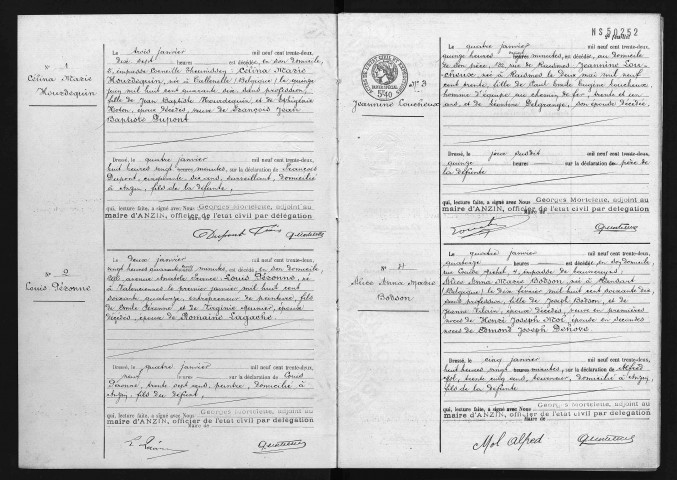 N° 1
Célina Marie
Hourdequin
Le trois janvier mil neuf cent trente-deux,
dix sept heures est décédée, en son domicile,
5, impasse Corneille Theunissey: Célina Marie
Hourdequin, née à Callenelle (Belgique) le quinze
juin mil huit cent quarante six, sans profession,
fille de Jean Baptiste Hourdequin, et de
époux décédés, veuve de François Jean
Baptiste Dupont
Dressé, le quatre janvier mil neuf cent trente-deux,
huit heures vingt minutes, sur la déclaration de François
Dupont, cinquante six ans, surveillant, domicilié
à Anzin, fils de la défunte,
qui, lecture faite, a signé avec Nous Georges Mortelette, adjoint au
maire d'ANZIN, officier de l'état civil par délégation
Maire de
Dupont
N° 2
Louis Péronne
Le deux janvier mil neuf cent trente-deux,
vingt heures quarante minutes, est décédé, en son domicile
avenue Anatole France: Louis Péronne, né
à Valenciennes le premier janvier mil huit cent
soixante quatorze, entrepreneur de peinture, fils
de Emile Péronne et de Virginie Meunier, époux
décédés, époux de Romaine Lagache
Dressé, le quatre janvier mil neuf cent trente-deux,
neuf heures sur la déclaration de Louis
Péronne, trente sept ans, peintre, domicilié à
Anzin, fils du défunt,
qui, lecture faite, a signé avec Nous Georges Mortelette, adjoint au
maire d'ANZIN, officier de l'état civil par délégation
Maire de
NS50252
N° 3
Jeannine Loucheux
Le quatre janvier mil neuf cent trente-deux,
quinze heures minutes, est décédée, au domicile
de son père, rue de Raismes Jeannine Lou-
cheux, née à Raismes le deux mai mil neuf
cent trente, fille de Paul Emile Eugène Loucheux,
homme d'équipe au chemin de fer, trente et un
ans, et de Léontine Delgrange, son épouse décédée.
Dressé, le jour susdit mil neuf cent trente-deux,
quinze heures sur la déclaration de père de
la défunte
qui, lecture faite, a signé avec Nous Georges Mortelette, adjoint au
maire d'ANZIN, officier de l'état civil par délégation
Maire de
N° 4
Alice Anna Marie
Bodson
Le quatre janvier mil neuf cent trente-deux,
quatorze heures est décédée en son domicile
rue 4, impasse
Alice Anna Marie Bodson, née à
(Belgique) le deux février mil huit cent soixante dix,
sans profession, fille de Joseph Bodson, et de
Jeanne époux décédés, veuve en premières
noces de Henri Joseph Mol, épouse en secondes
noces de Edmond Joseph Denove
Dressé, le cinq janvier mil neuf cent trente-deux,
huit heures vingt minutes, sur la déclaration de Alfred
Mol, trente cinq ans, domicilié à Anzin,
fils de la défunte
qui, lecture faite, a signé avec Nous Georges Mortelette, adjoint au
maire d'ANZIN, officier de l'état civil par délégation
Maire de
Mol Alfred